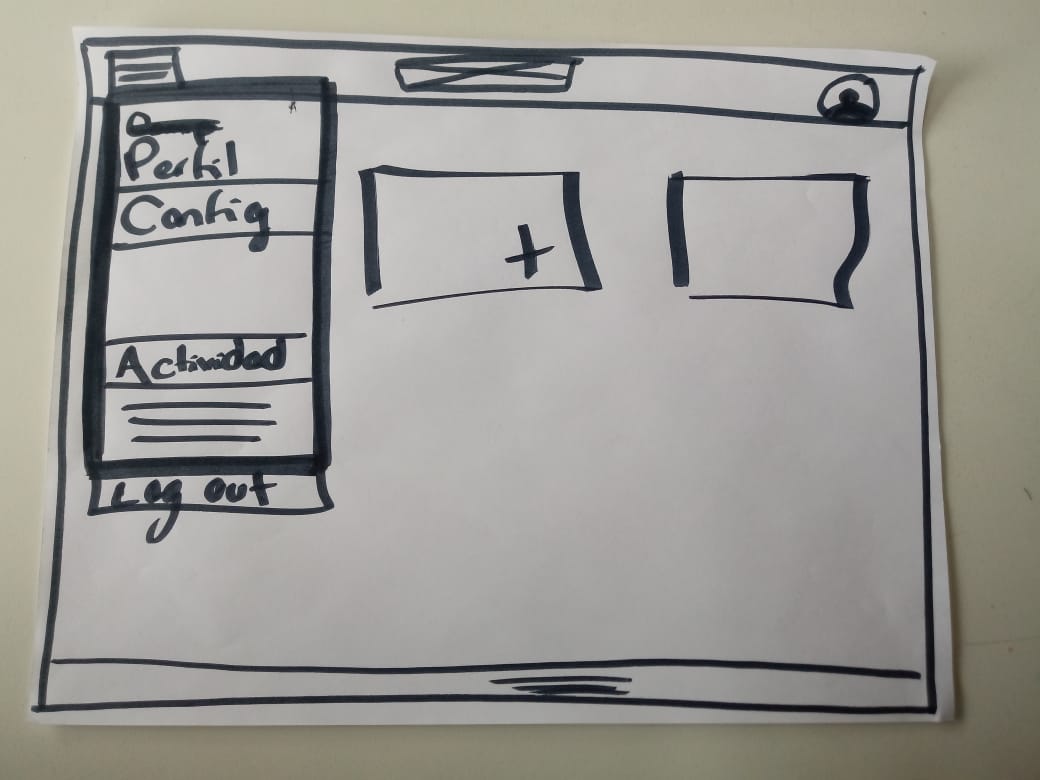 Perfil
Config
Actividad
Log out